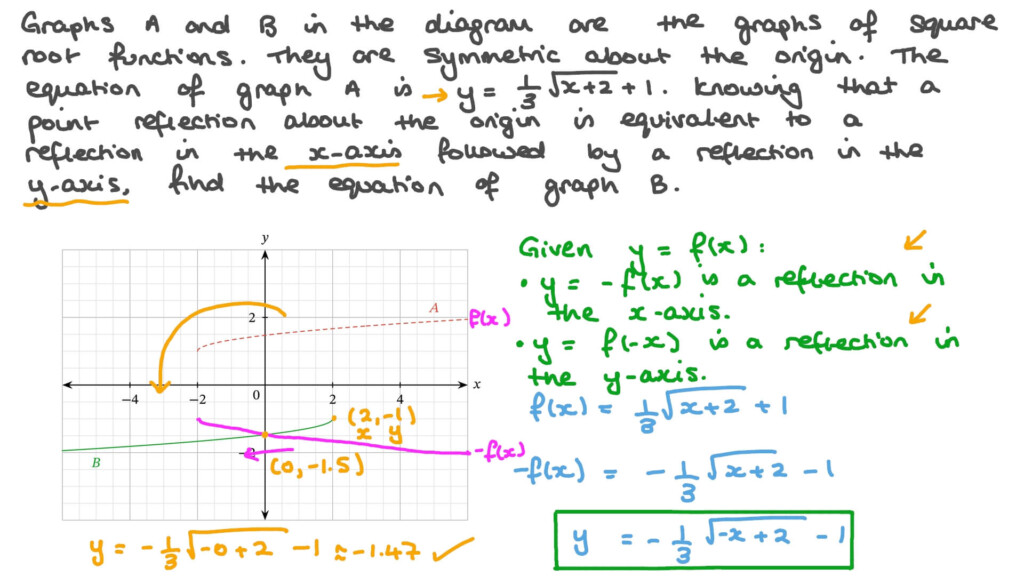 Graphs A and B in the diagram are the graphs of square
root functions. They are symmetric about the origin. The
equation of graph A is → y = 1/3 √(x+2) + 1. Knowing that a
point reflection about the origin is equivalent to a
reflection in the x-axis followed by a reflection in the
y-axis, find the equation of graph B.
Given y = f(x):
• y = -f(x) is a reflection in
the x-axis.
• y = f(-x) is a reflection in
the y-axis.
f(x) = 1/3 √(x+2) + 1
-f(x) = - 1/3 √(x+2) - 1
y = - 1/3 √(-x+2) - 1
y
2
A
f(x)
-4 -2 0 2 4 x
(2,-1)
x y
-2
-f(x)
B
(0,-1.5)
y = - 1/3 √(-0+2) - 1 ≈ -1.47 ✓